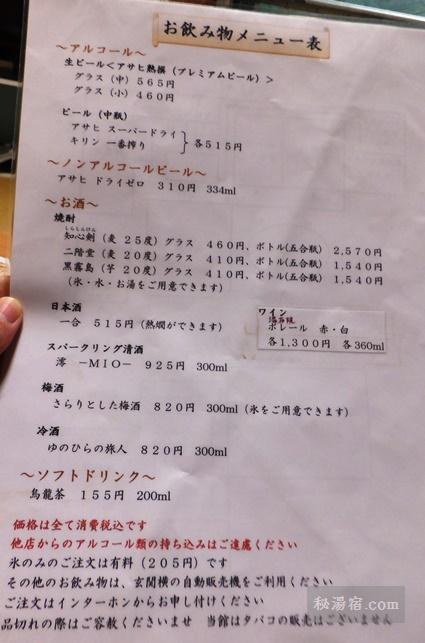 お飲み物メニュー表
～アルコール～
生ビール＜アサヒ熟撰（プレミアムビール）＞
グラス（中）５６５円
グラス（小）４６０円
ビール（中瓶）
アサヒ スーパードライ
キリン 一番搾り
各５１５円
～ノンアルコールビール～
アサヒ ドライゼロ ３１０円 334ml
～お酒～
焼酎
しらしんけん
知心剣（麦 ２５度）グラス ４６０円、ボトル(五合瓶) ２,５７０円
二階堂（麦 ２０度）グラス ４１０円、ボトル(五合瓶) １,５４０円
黒霧島（芋 ２０度）グラス ４１０円、ボトル(五合瓶) １,５４０円
（氷・水・お湯をご用意できます）
日本酒
一合 ５１５円（熱燗ができます）
ワイン
ボレール 赤・白
各１,３００円 各360ml
スパークリング清酒
澪 －ＭＩＯ－ ９２５円 300ml
梅酒
さらりとした梅酒 ８２０円 300ml（氷をご用意できます）
冷酒
ゆのひらの旅人 ８２０円 300ml
～ソフトドリンク～
烏龍茶 １５５円 200ml
価格は全て消費税込です
他店からのアルコール類の持ち込みはご遠慮ください
氷のみのご注文は有料（２０５円）です
その他のお飲み物は、玄関横の自動販売機をご利用ください
ご注文はインターホンからお申し付けください
品切れの際はご容赦くださいませ 当館はタバコの販売はございません
秘湯宿.com